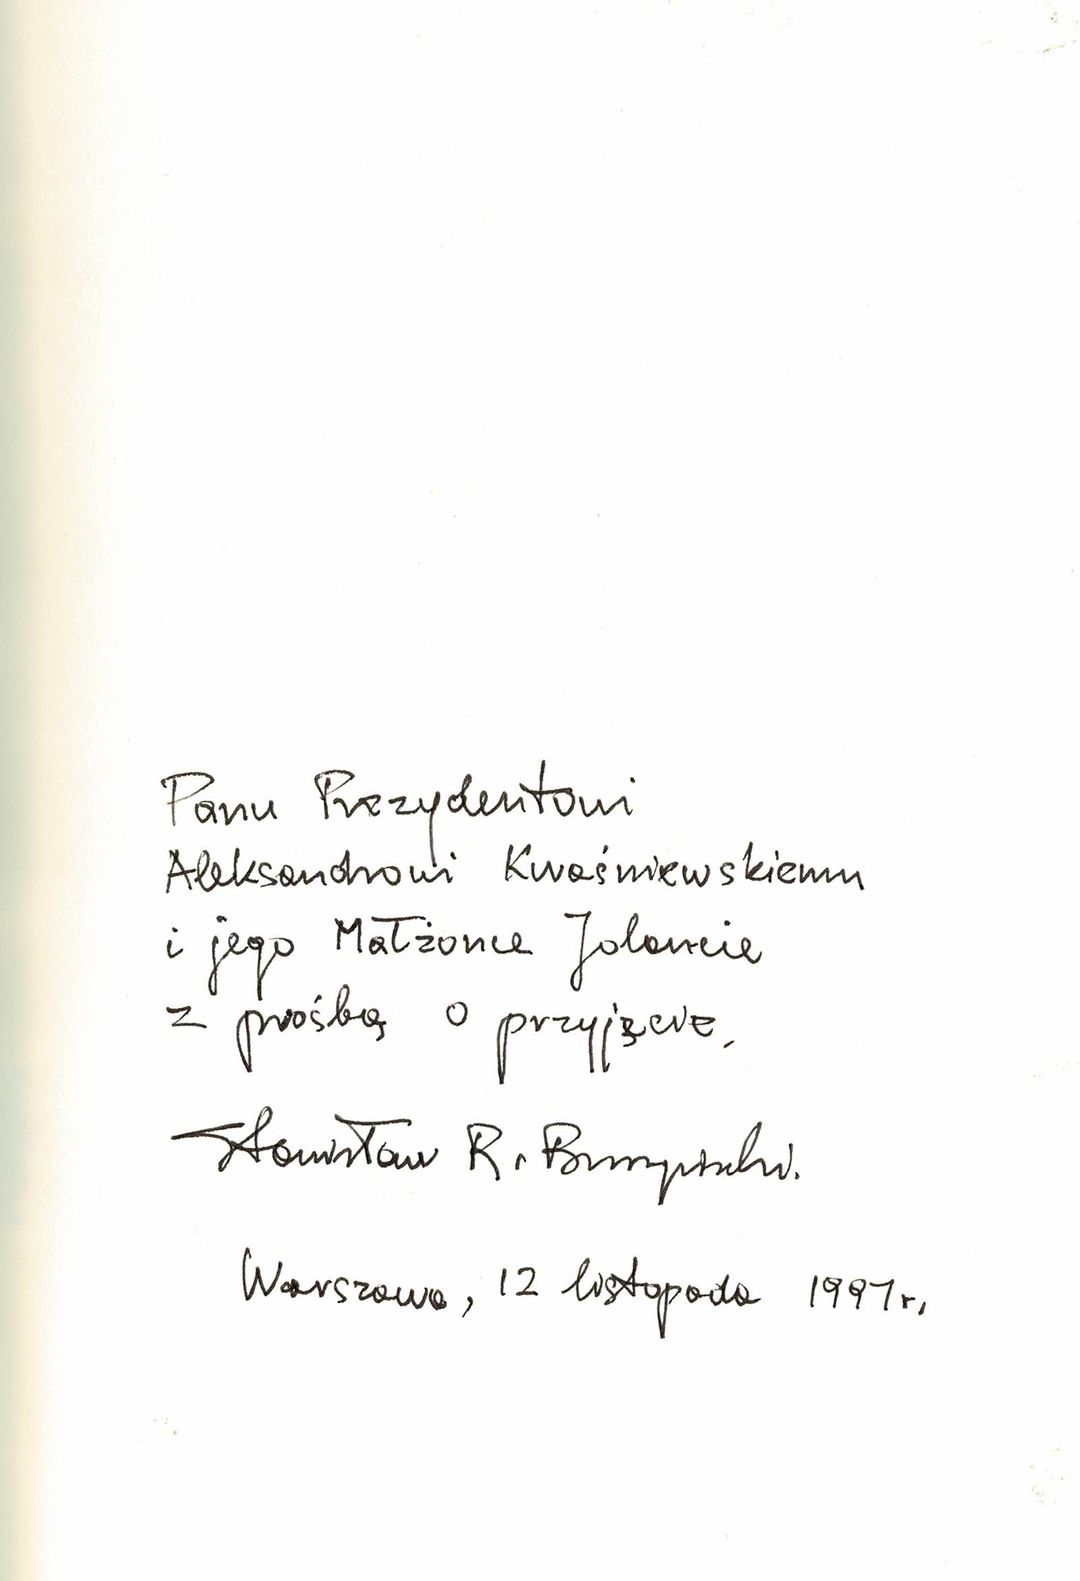 Panu Prezydentowi
Aleksandrowi Kwaśniewskiemu
i jego Małżonce Jolancie
z prośbą o przyjęcie,
Stanisław R.
Warszawa, 12 listopada 1997 r.